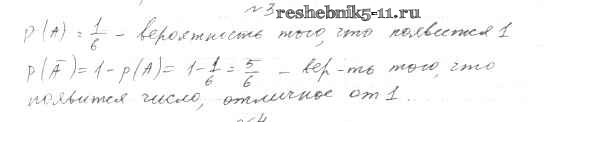 №3
reshebnik5-11.ru
P(A) = 1/6 - вероятность того, что появится 1
p(Ā) = 1 - p(A) = 1 - 1/6 = 5/6 - вер-ть того, что
появится число, отличное от 1.
№4